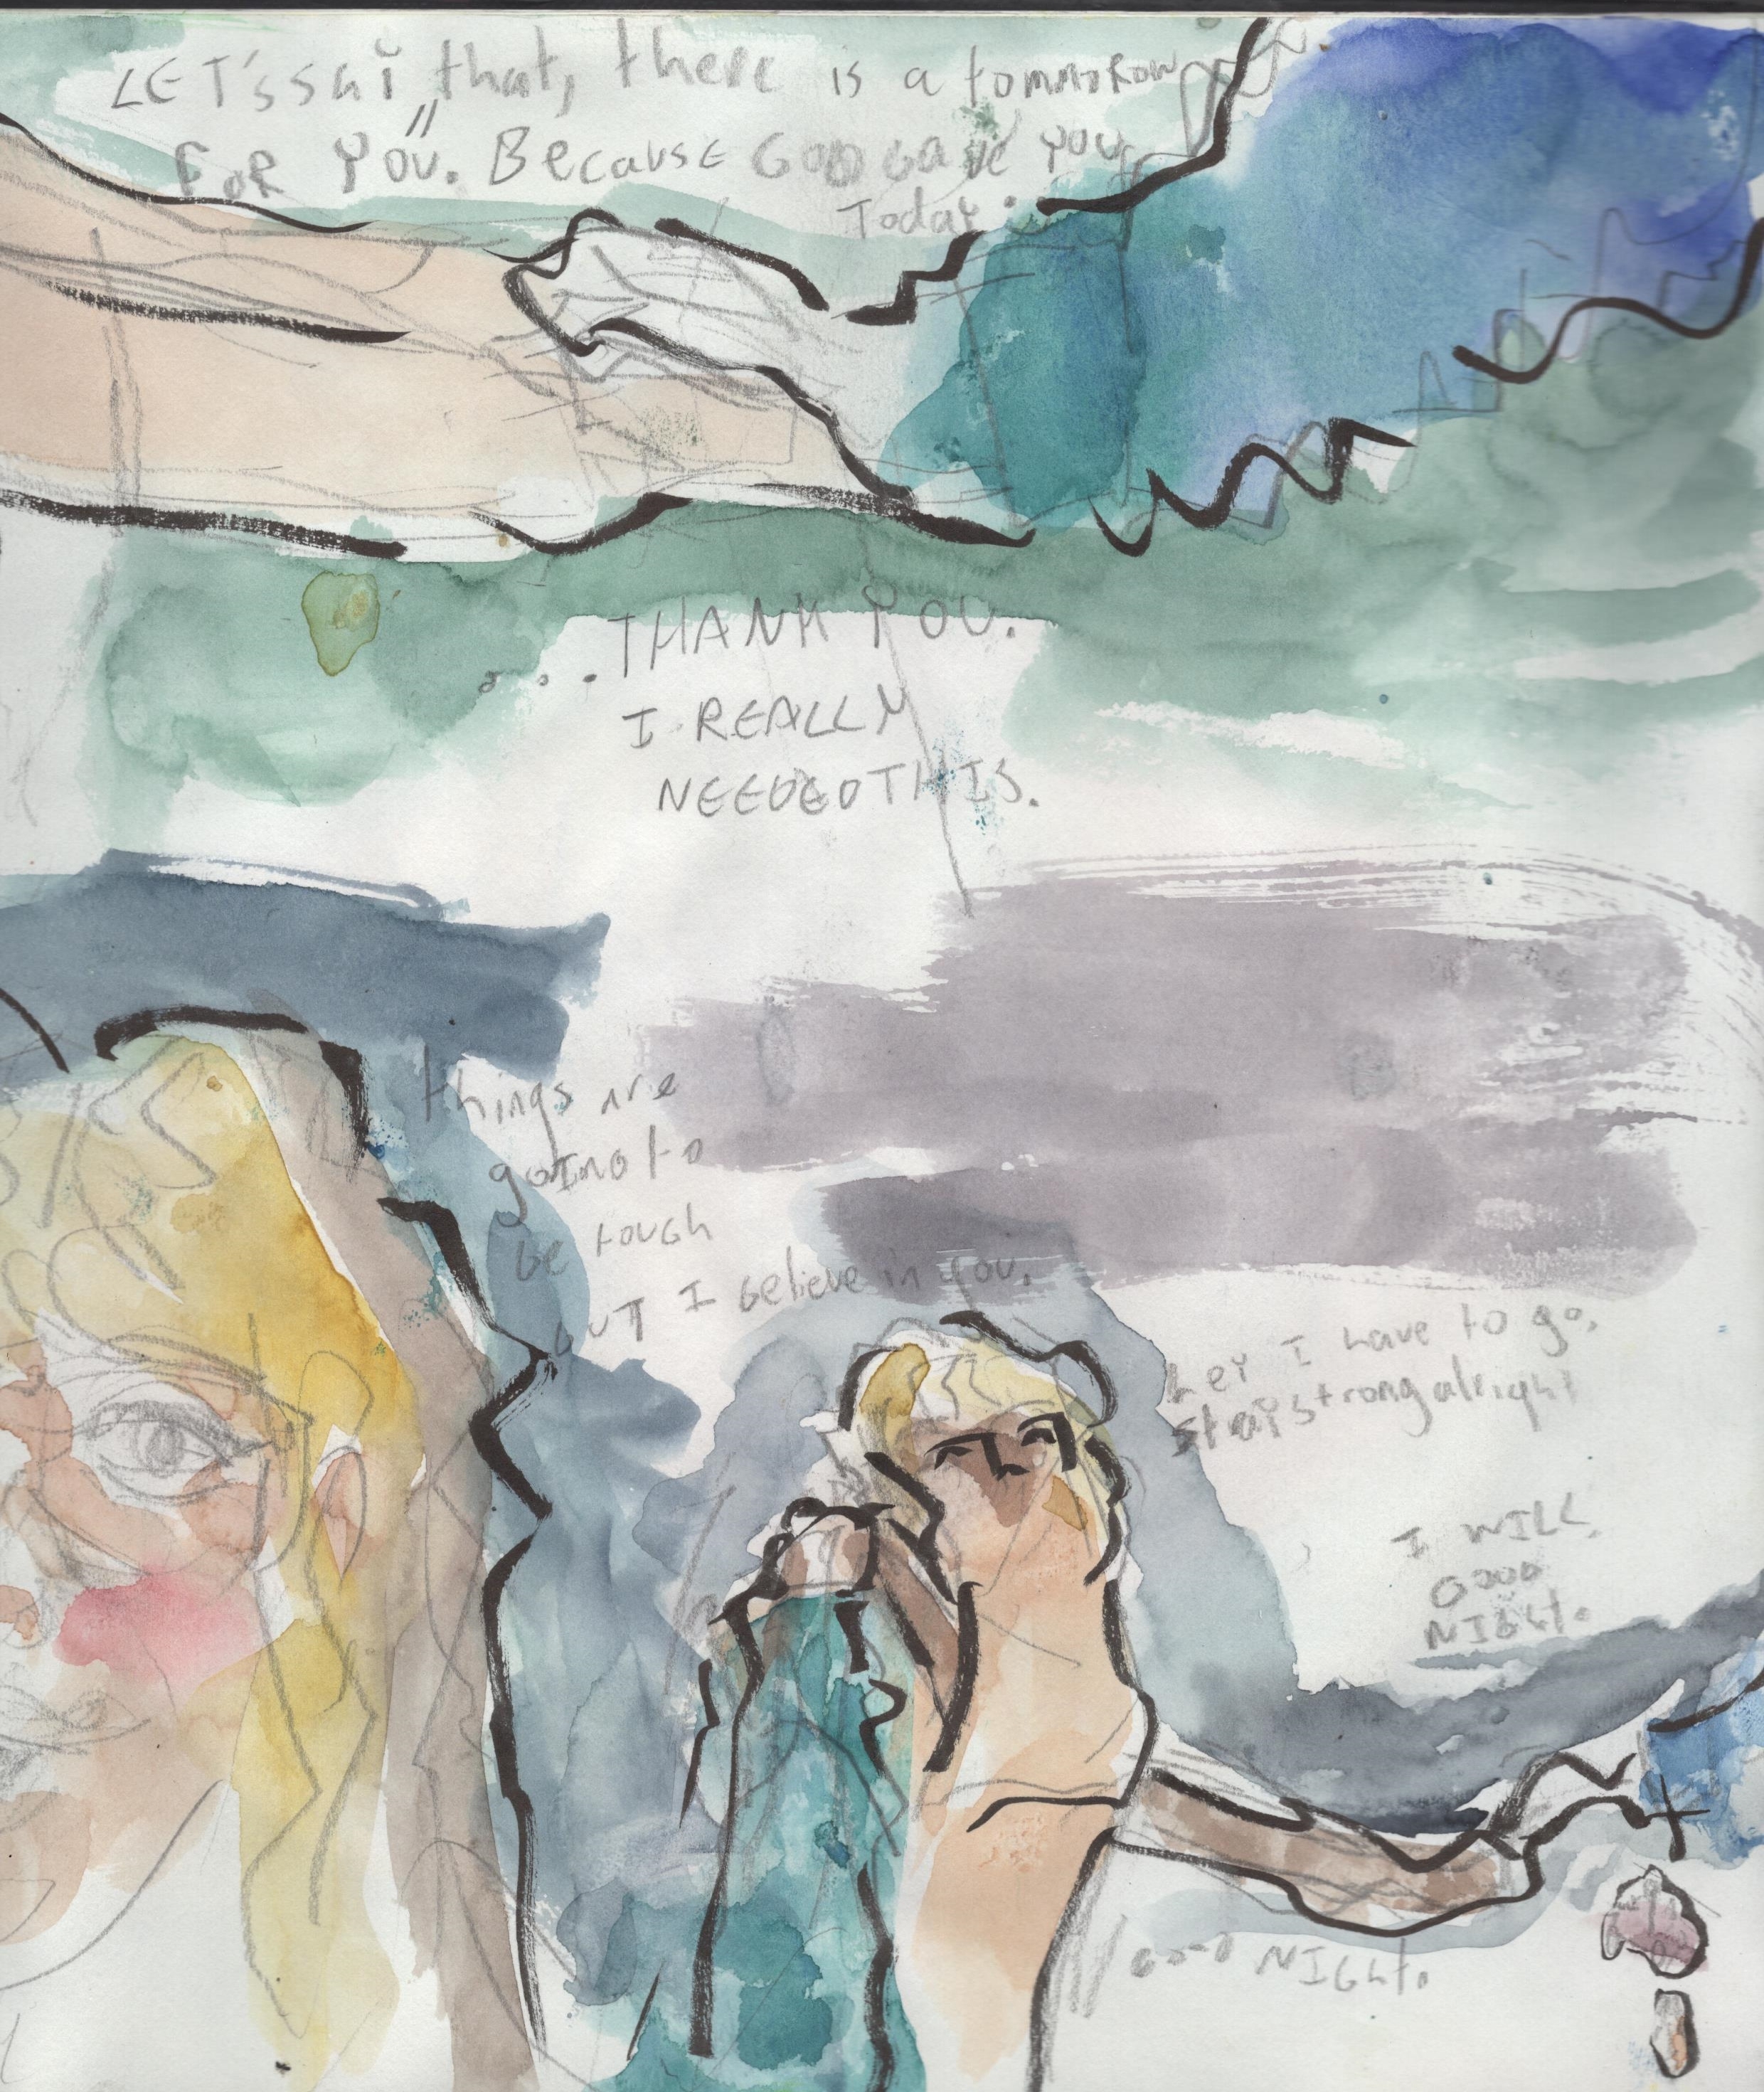 LET'S SAY that, there is a tommorow
FOR YOU. Because GOD GAVE YOU
Today.
...THANK YOU.
I REALLY
NEEDED THIS.
things are
going to
be tough
BUT I believe in you.
hey I have to go,
stay strong alright
I WILL
GOOD
NIGht.
GOOD NIGht.